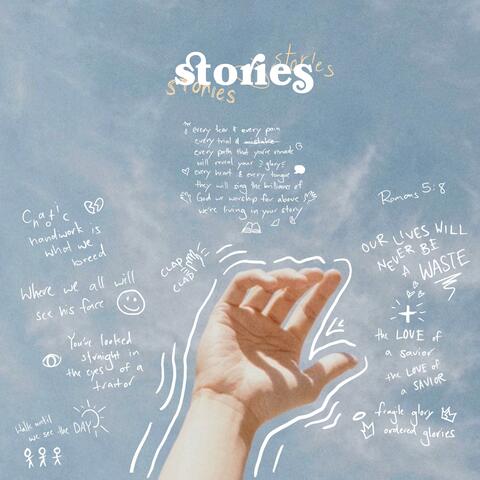 stories
stories
stories
every tear & every pain
every trial & mistake
every path that you've made
will reveal your glory
every heart & every tongue
they will sing the brilliance of
God we worship for above
we're living in your story
Romans 5:8
Chaotic
handwork is
what we
breed
OUR LIVES WILL
NEVER BE
A WASTE
CLAP
CLAP
Where we all will
see his face
the LOVE of
a savior,
the LOVE of
a SAVIOR
You've looked
straight in
the eyes of a
traitor
fragile glory
ordered glories
Walk until
we see the DAY